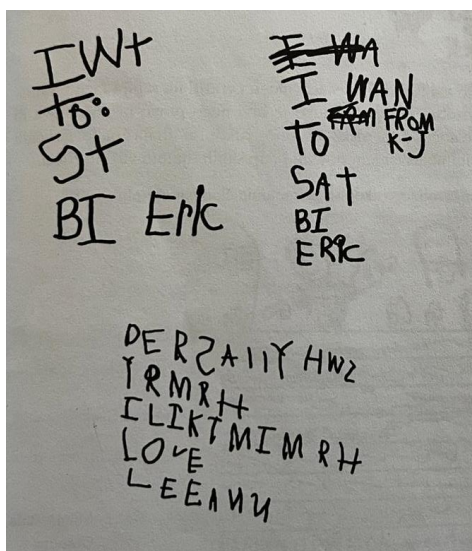 IWt
to:
St
BI Eric
I WAN
TO FROM
K-J
SAT
BI
ERIC
DERSAllY HWS
YRMRH
ILIKTMIMRH
LOVE
LEEANN